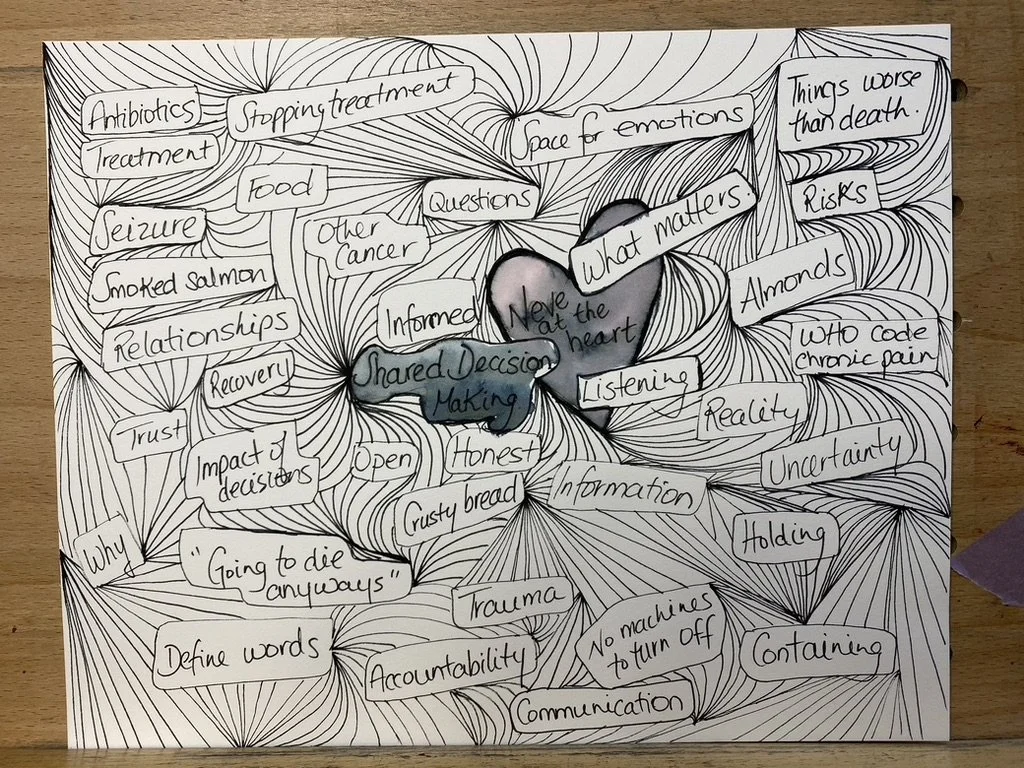 Antibiotics
Stopping treatment
Space for emotions
Things worse
than death.
Treatment
Food
Questions
What matters
Risks
Seizure
Other
Cancer
Smoked salmon
Informed
Neve
at the
heart
Almonds
Relationships
WHO code
chronic pain
Shared Decision
Making
Recovery
Listening
Reality
Trust
Impact of
decisions
Open
Honest
Uncertainty
Crusty bread
Information
Why
"Going to die
anyways"
Holding
Trauma
No machines
to turn off
Define words
Accountability
Containing
Communication